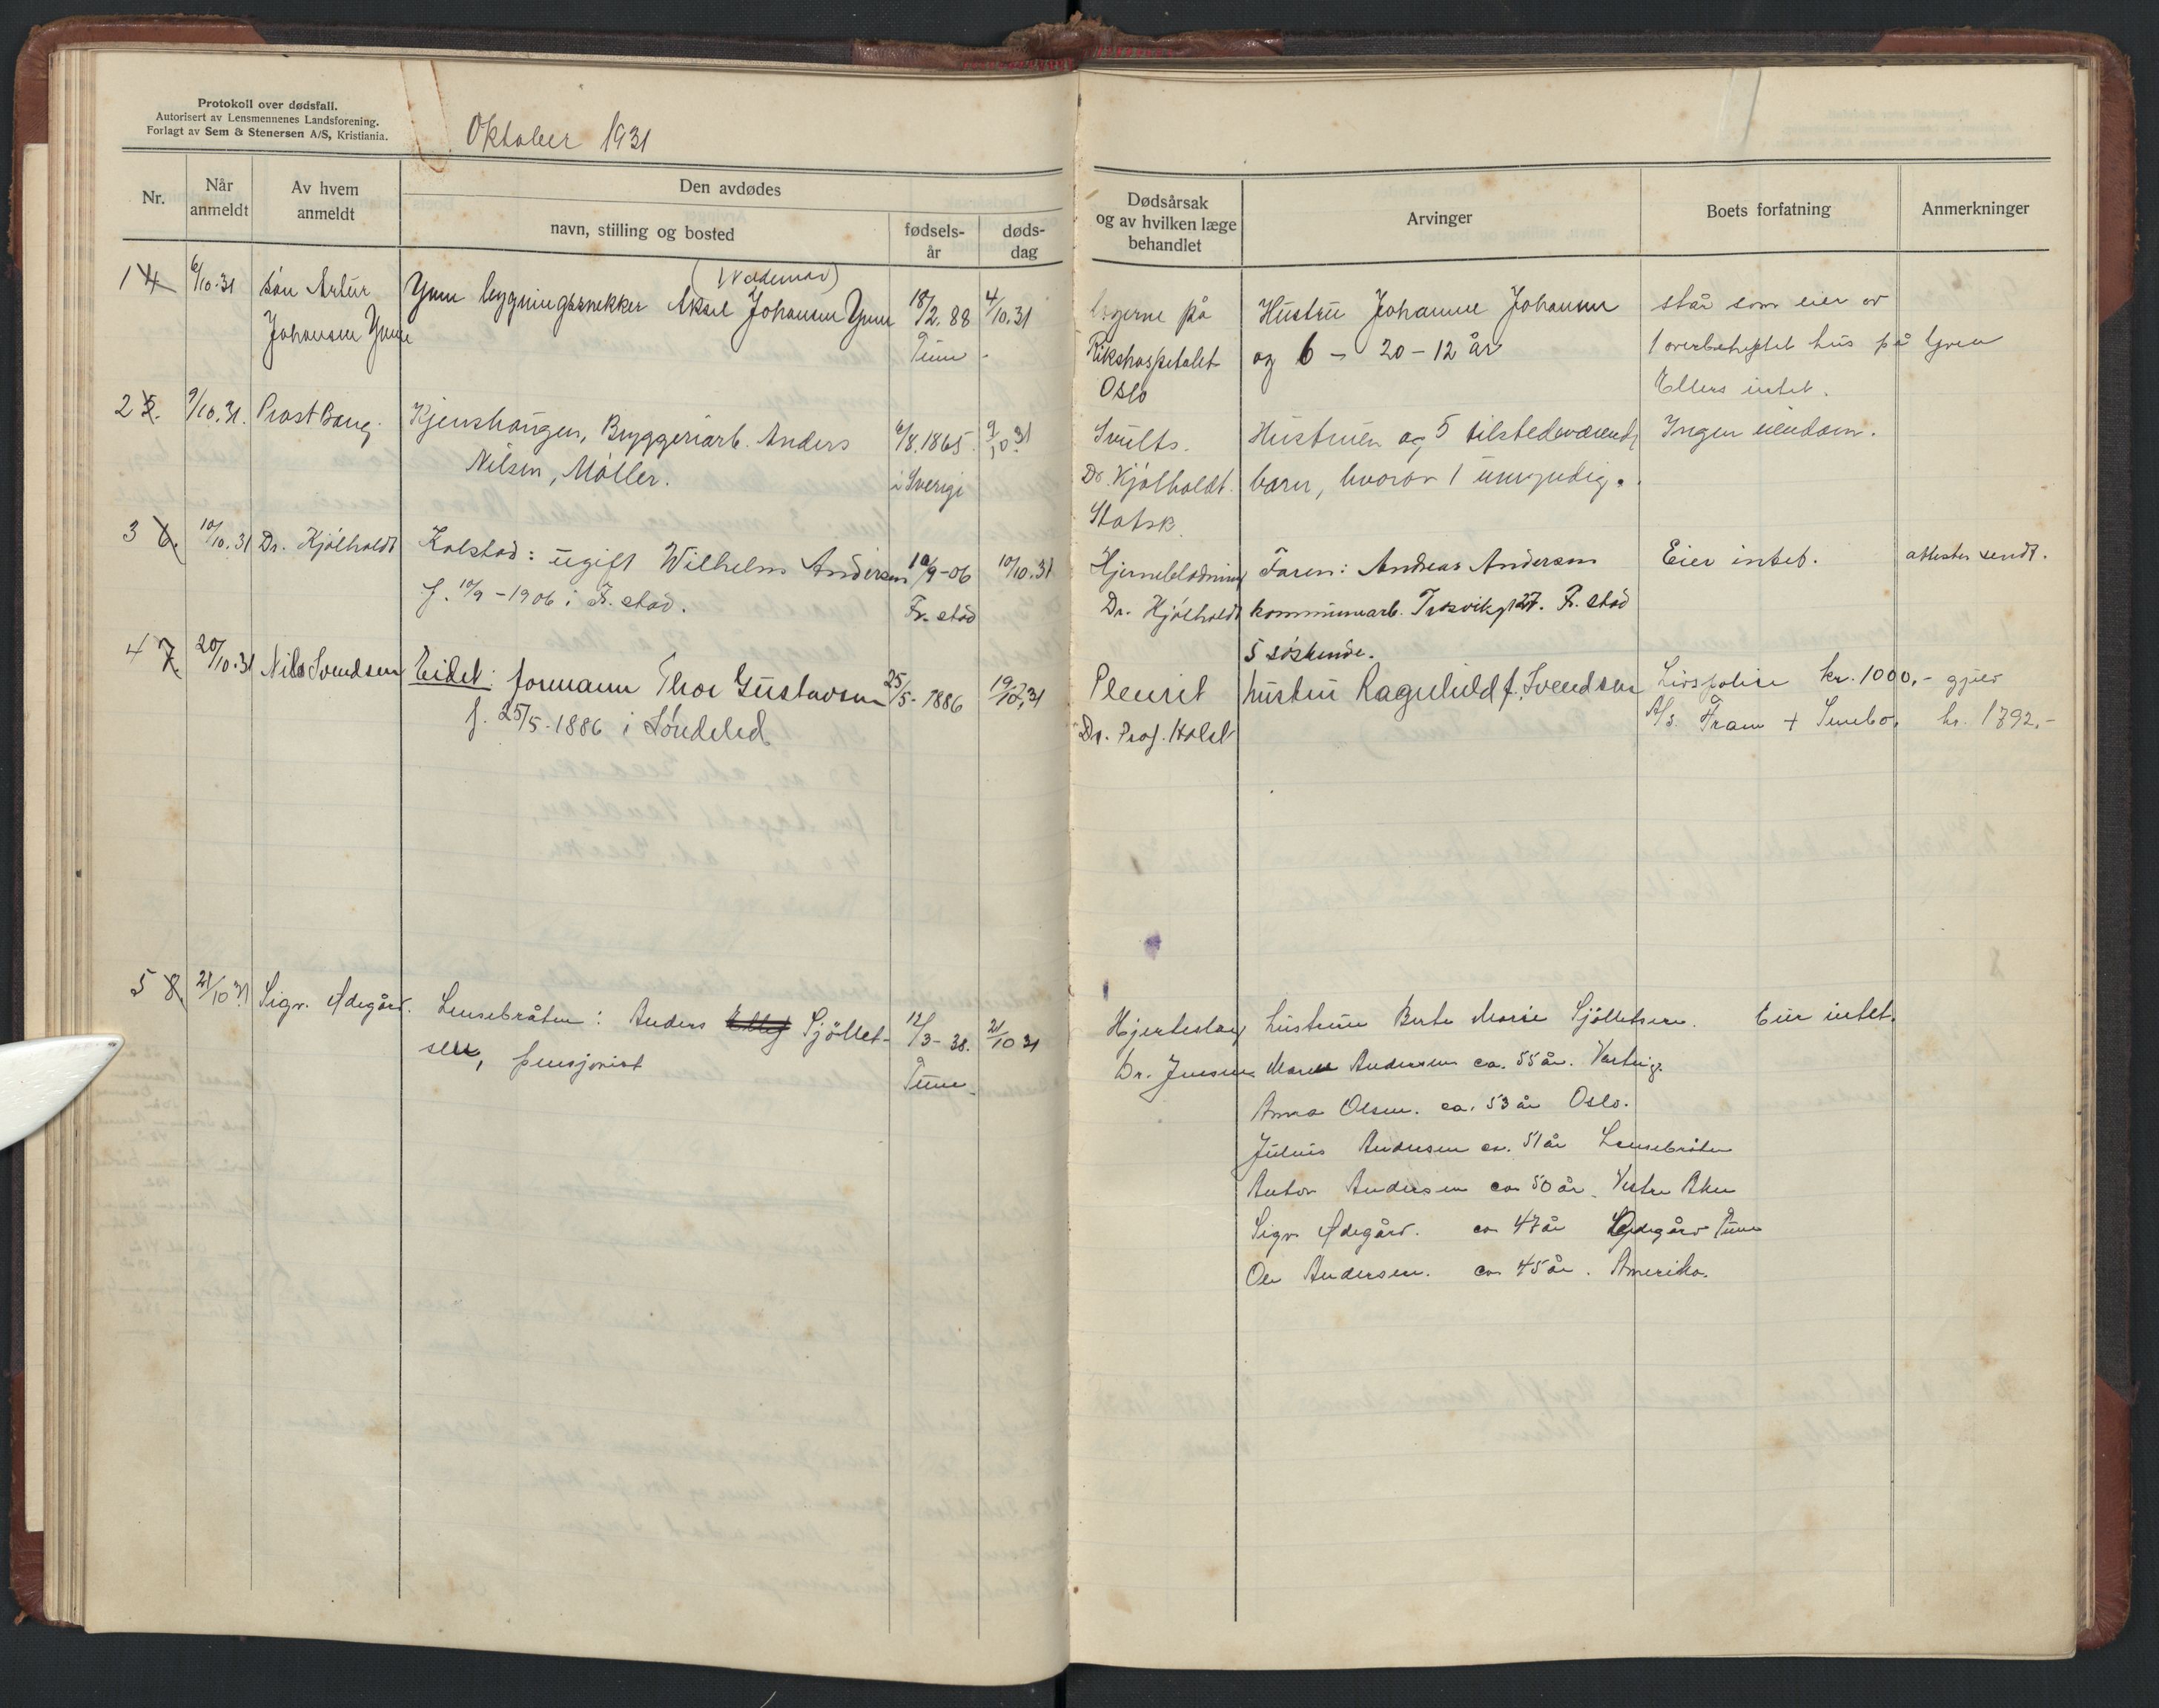 Protokoll over dødsfall.
Autorisert av Lensmennenes Landsforening.
Forlagt av Sem & Stenersen A/S, Kristiania.
Oktober 1931
Nr.
Når anmeldt
Av hvem anmeldt
Den avdødes
navn, stilling og bosted
fødsels-år
døds-dag
Dødsårsak
og av hvilken læge
behandlet
Arvinger
Boets forfatning
Anmerkninger
1 4 6/10.31 søn Artur bygningssnekker Aksel Johansen 18/2. 88 4/10.31
Johansen
Tune
lægerne på Hustru Johanne Johansen står som eier av
Rikshospitalet og 6 - 20-12 år 1 overbeheftet hus på
Oslo Ellers intet.
2 5. 9/10.31. Prost Bang. Kjenshaugen, Bryggeriarb. Anders 6/8.1865. 9/10.31
Nilsen, Møller. i Sverige
Hustruen og 5 tilstedeværende Ingen eiendom.
Dr. Kjølholdt. barn, hvorav 1 umyndig.
3 6. 10/10.31 Dr. Kjølholdt Kolstad: ugift Wilhelm Andersen 10/9-06 10/10.31
f. 10/9-1906 i Fr.stad. Fr.stad
Hjerneblødning Faren: Andreas Andersen Eier intet. attester sendt.
Dr. Kjølholdt kommunearb. Trosvikgt 27. Fr.stad
5 søskende.
4 7. 20/10.31 Nils Svendsen Eidet: formann Thor Gustavsen 25/5-1886 19/10.31
f. 25/5-1886 i Søndeled
Pleurit hustru Ragnhild f. Svendsen Livspolise kr. 1000,- gjeld
Dr. Prof. Holst A/s. Fram + kr. 1792.-
5 8. 21/10 31 Sigv. Ødegård. Lensebråten: Anders Sjøllet- 12/3-38. 21/10 31
sen, pensjonist Tune
Hjerteslag hustruen Berte Marie Sjølletsen. Eier intet.
Dr. Jensen. Andersen ca. 55 år. Varteig.
Anna Olsen. ca. 53 år Oslo.
Julius Andersen ca. 51 år Lensebråten
Anton Andersen ca 50 år. Vestre Aker
Sigv. Ødegård. ca 47 år Ødegård Tune
Ole Andersen. ca 45 år. Amerika.